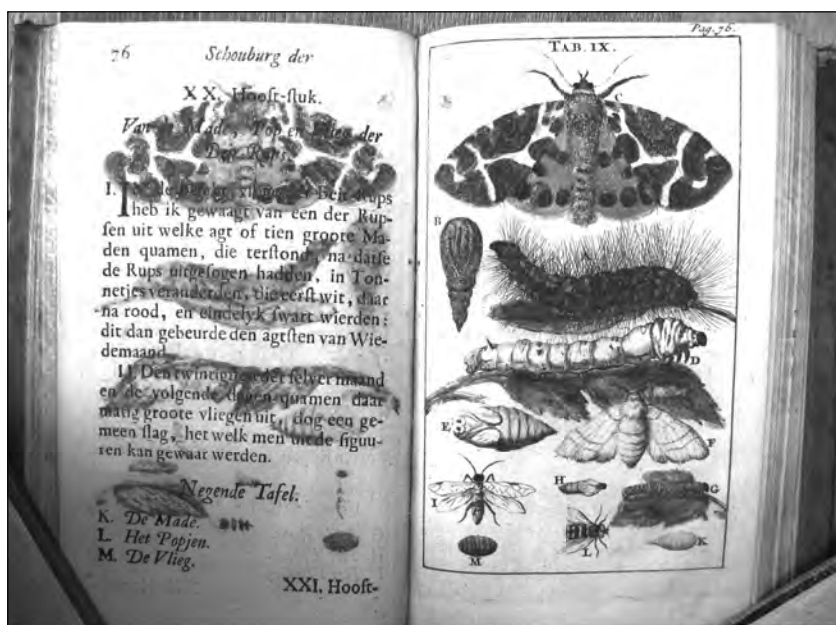 76 Schouburg der
XX. Hooft-ſtuk.
Van de Made, Pop en Vlieg der
Rups.
I. IN de Rups
heb ik gewaagt van een der Rup-
ſen uit welke agt of tien groote Ma-
den quamen, die terſtond, na datſe
de Rups uitgeſogen hadden, in Ton-
netjes veranderden, die eerſt wit, daar
na rood, en eindelyk ſwart wierden:
dit dan gebeurde den agtſten van Wie-
demaand.
II. Den twintigſten der ſelver maand
en de volgende dagen quamen daar
matig groote vliegen uit, dog een ge-
meen ſlag, het welk men uit de figuu-
ren kan gewaar werden.
Negende Tafel.
K. De Made.
L. Het Popjen.
M. De Vlieg.
XXI. Hooft-
Pag. 76.
TAB. IX.
C
B
A
D
E
F
H
G
I
L
K
M